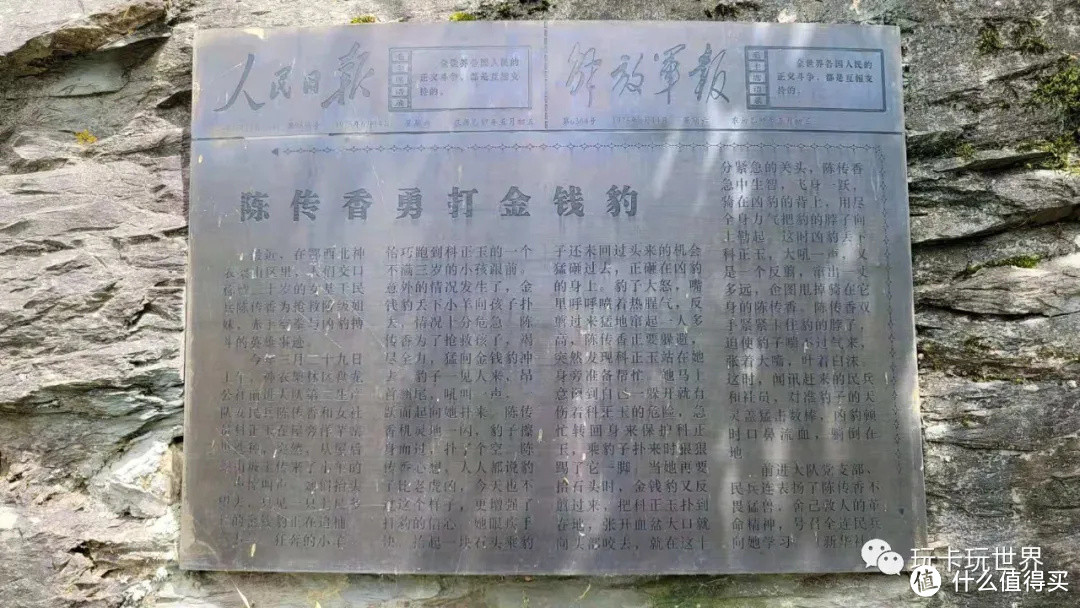 人民日报
毛主席语录
全世界各国人民的
正义斗争，都是互相支
持的。
解放军报
毛主席语录
全世界各国人民的
正义斗争，都是互相支
持的。
陈传香勇打金钱豹
最近，在鄂西北神
农架山区里，人们交口
二十岁的女基干民
兵陈传香为抢救阶级姐
妹，赤手空拳与凶豹搏
斗的英雄事迹。
今年三月二十九日
上午，神农架林区
公社前进大队第三生产
队女民兵陈传香和女社
员科正玉在屋旁洋芋
突然，从屋后
山坡上传来了小羊的
她们抬头
望去，只见一只
的金钱豹正在追捕
狂奔的小羊
恰巧跑到科正玉的一个
不满三岁的小孩跟前。
意外的情况发生了，金
钱豹丢下小羊向孩子扑
去，情况十分危急。陈
传香为了抢救孩子，竭
尽全力，猛向金钱豹冲
去。豹子一见人来，昂
首翘尾，吼叫一声，
跃而起向她扑来。陈传
香机灵地一闪，豹子擦
身而过，扑了个空。陈
传香心想，人人都说豹
子比老虎凶，今天也不
过这个样子，更增强了
打豹的信心。她眼疾手
快，拾起一块石头乘豹
子还未回过头来的机会
猛砸过去，正砸在凶豹
的身上。豹子大怒，嘴
里呼呼喷着热腥气，反
剪过来猛地窜起一人多
高，陈传香正要躲避，
突然发现科正玉站在她
身旁准备帮忙。她马上
意识到自己一躲开就有
伤着科正玉的危险，急
忙转回身来保护科正
玉，乘豹子扑来时狠狠
踢了它一脚。当她再要
拾石头时，金钱豹又反
剪过来，把科正玉扑到
在地，张开血盆大口就
向头部咬去，就在这十
分紧急的关头，陈传香
急中生智，飞身一跃，
骑在凶豹的背上，用尽
全身力气把豹的脖子向
上勒起。这时凶豹丢下
科正玉，大吼一声，又
是一个反剪，窜出一丈
多远，企图甩掉骑在它
身的陈传香。陈传香双
手紧紧卡住豹的脖子，
迫使豹子喘不过气来，
张着大嘴，吐着白沫。
这时，闻讯赶来的民兵
和社员，对准豹子的天
灵盖猛击数棒，凶豹顿
时口鼻流血，躺倒在
地。
前进大队党支部、
民兵连表扬了陈传香不
畏猛兽、舍己救人的革
命精神，号召全连民兵
向她学习。 新华社
玩卡玩世界
值 什么值得买